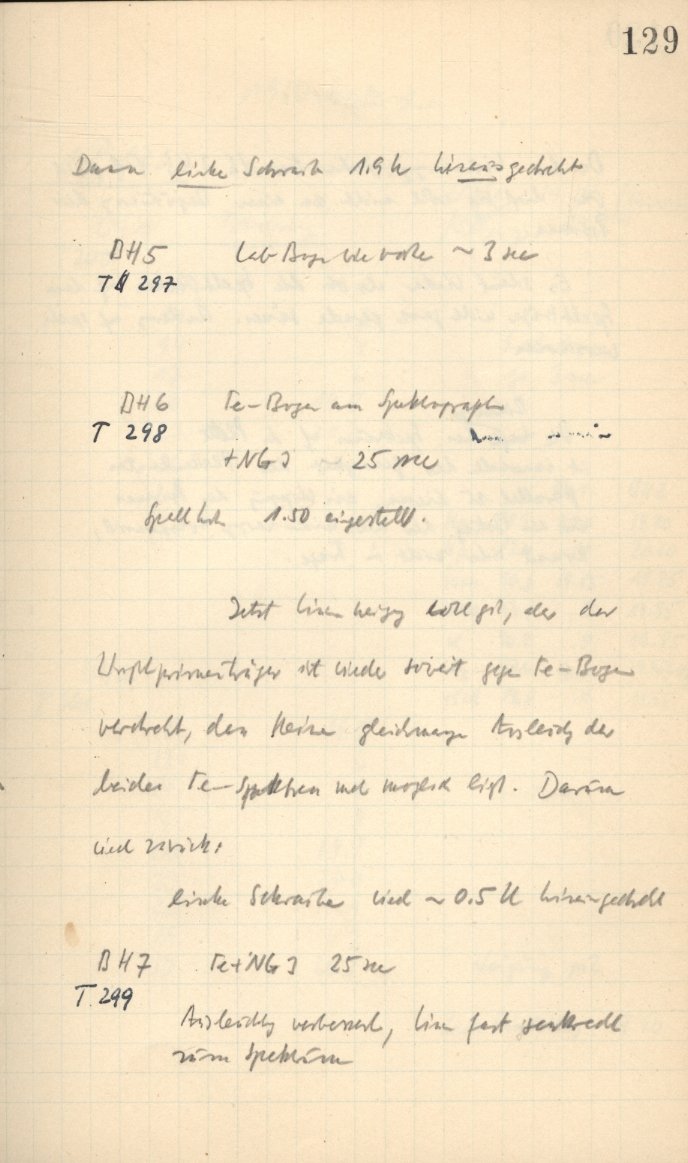 129
Dann linke Schraub 1.9 U hinausgedreht
BH5 Lab Bogen wie vorher ~ 3 sec
T 297
BH6 Fe-Bogen am Spektrograph
T 298
+NG I 25 sec
Spalthöh 1.50 eingestellt.
Jetzt Linienneigung gut, aber der
Umfkprismenträger ist wieder soweit gegen Fe-Bogen
verdreht, dass keine gleichmässige Ausleuchtg der
beiden Fe-Spektren mehr möglich ist. Darum
wied zurück:
linke Schraube wied ~ 0.5 U hineingedreht
BH7 Fe+NG I 25 sec
T 299
Ausleuchtg verbessert, Linien fast senkrecht
zum Spektrum